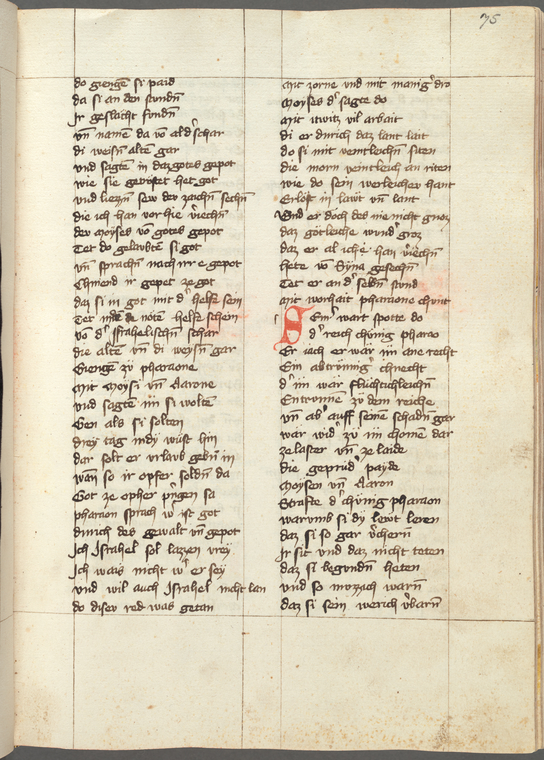 75
do gienge͂ si paid
da si an den stundn̄
Ir geslacht fundn̄
vn̄ name͂ da vō ald' schar
di weisn̄ alte͂ gar
vnd sagte͂ in daz gotes gepot
wie sie getröstet het got
vnd liezn̄ sew der zaichn̄ sechn̄
die ich han vor hie v̈iechn̄
der moyses vō gotes gepot
Tet do gelaubte͂ si got
vn̄ sprachn̄ nach irr e gepot
Chinend ir gepet ze got
daz si in got mit d' helfe sein
Tet in de nöte helfe schein
vō d' israhelischn̄ schar
die alte͂ vn̄ di weysn̄ gar
Gienge͂ zü pharaone
mit moysi vn̄ Aarone
vnd sagte͂ im si wolte͂
Gen als si solten
drey tag in dy wüst hin
daz solt er vrlaub gebn̄ in
wan̄ so ir opfer soldn̄ da
Got ze opher pringen sa
pharaon sprach w' ist got
durich des gewalt vn̄ gepot
Ich Israhel sol lazzen vrey
Ich wais nicht w' er sey
vnd wil auch Israhel nicht lan
do diser red was getan
mit zorne vnd mit manig' dro
moyses d' sagte do
mit itwitz vil arbait
di er durich daz lant lait
do si mit veintleichn̄ siten
die morn veintleich an riten
wie do sein werleichev hant
Erlöst in lawt vn̄ lant
Vnd er doch des nie nicht gnoz
daz götleiche wund' groz
daz er al iche han v̈iechn̄
hete vō Syna gesechn̄
Tet er an d' selbn̄ stund
mit worhait pharaone chunt
Sein' wart spotte do
d' reich chünig pharao
Er iach er wär im ane recht
Ein abtrünnig' chnecht
d' im wär fluchtichleichn̄
Entrunne͂ zü dem reiche
vn̄ ab' auff seine͂ schadn̄ gar
wär wid' zü im chome͂ dar
ze laster vn̄ ze laide
die geprüd' payde
moysen vn̄ Aaron
Strafte d' chünig pharaon
warumb si dy lewt leren
daz si so gar v̈chern̄
Ir sit vnd daz nicht teten
daz si begundn̄ heten
vnd so mözach warn̄
daz si sein werich v̈barn̄